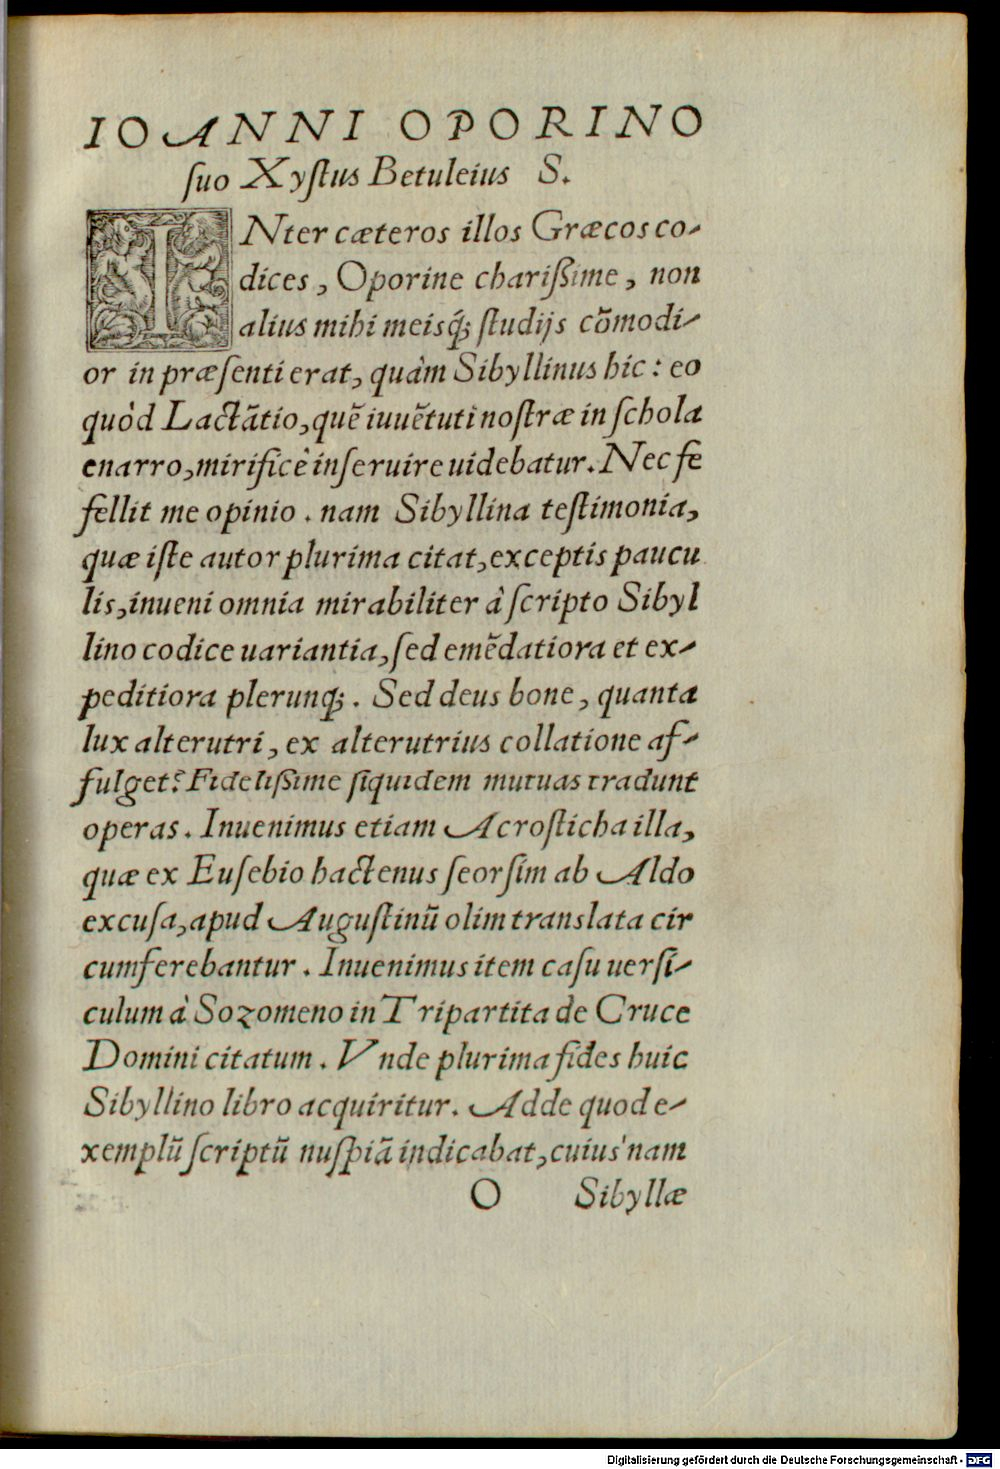 IOANNI OPORINO
suo Xystus Betuleius S.
INter cæteros illos Græcos co-
dices, Oporine charißime, non
alius mihi meisq́; studijs cōmodi-
or in præsenti erat, quàm Sibyllinus hic: eo
quòd Lactātio, quē iuuētuti nostræ in schola
enarro, mirificè inseruire uidebatur. Nec fe
fellit me opinio. nam Sibyllina testimonia,
quæ iste autor plurima citat, exceptis paucu
lis, inueni omnia mirabiliter à scripto Sibyl
lino codice uariantia, sed emēdatiora et ex-
peditiora plerunq;. Sed deus bone, quanta
lux alterutri, ex alterutrius collatione af-
fulget? Fidelißime siquidem mutuas tradunt
operas. Inuenimus etiam Acrosticha illa,
quæ ex Eusebio hactenus seorsim ab Aldo
excusa, apud Augustinū olim translata cir
cumferebantur. Inuenimus item casu uersi-
culum à Sozomeno in Tripartita de Cruce
Domini citatum. Vnde plurima fides huic
Sibyllino libro acquiritur. Adde quod e-
xemplū scriptū nuspiā indicabat, cuius'nam
O Sibyllæ
Digitalisierung gefördert durch die Deutsche Forschungsgemeinschaft - DFG